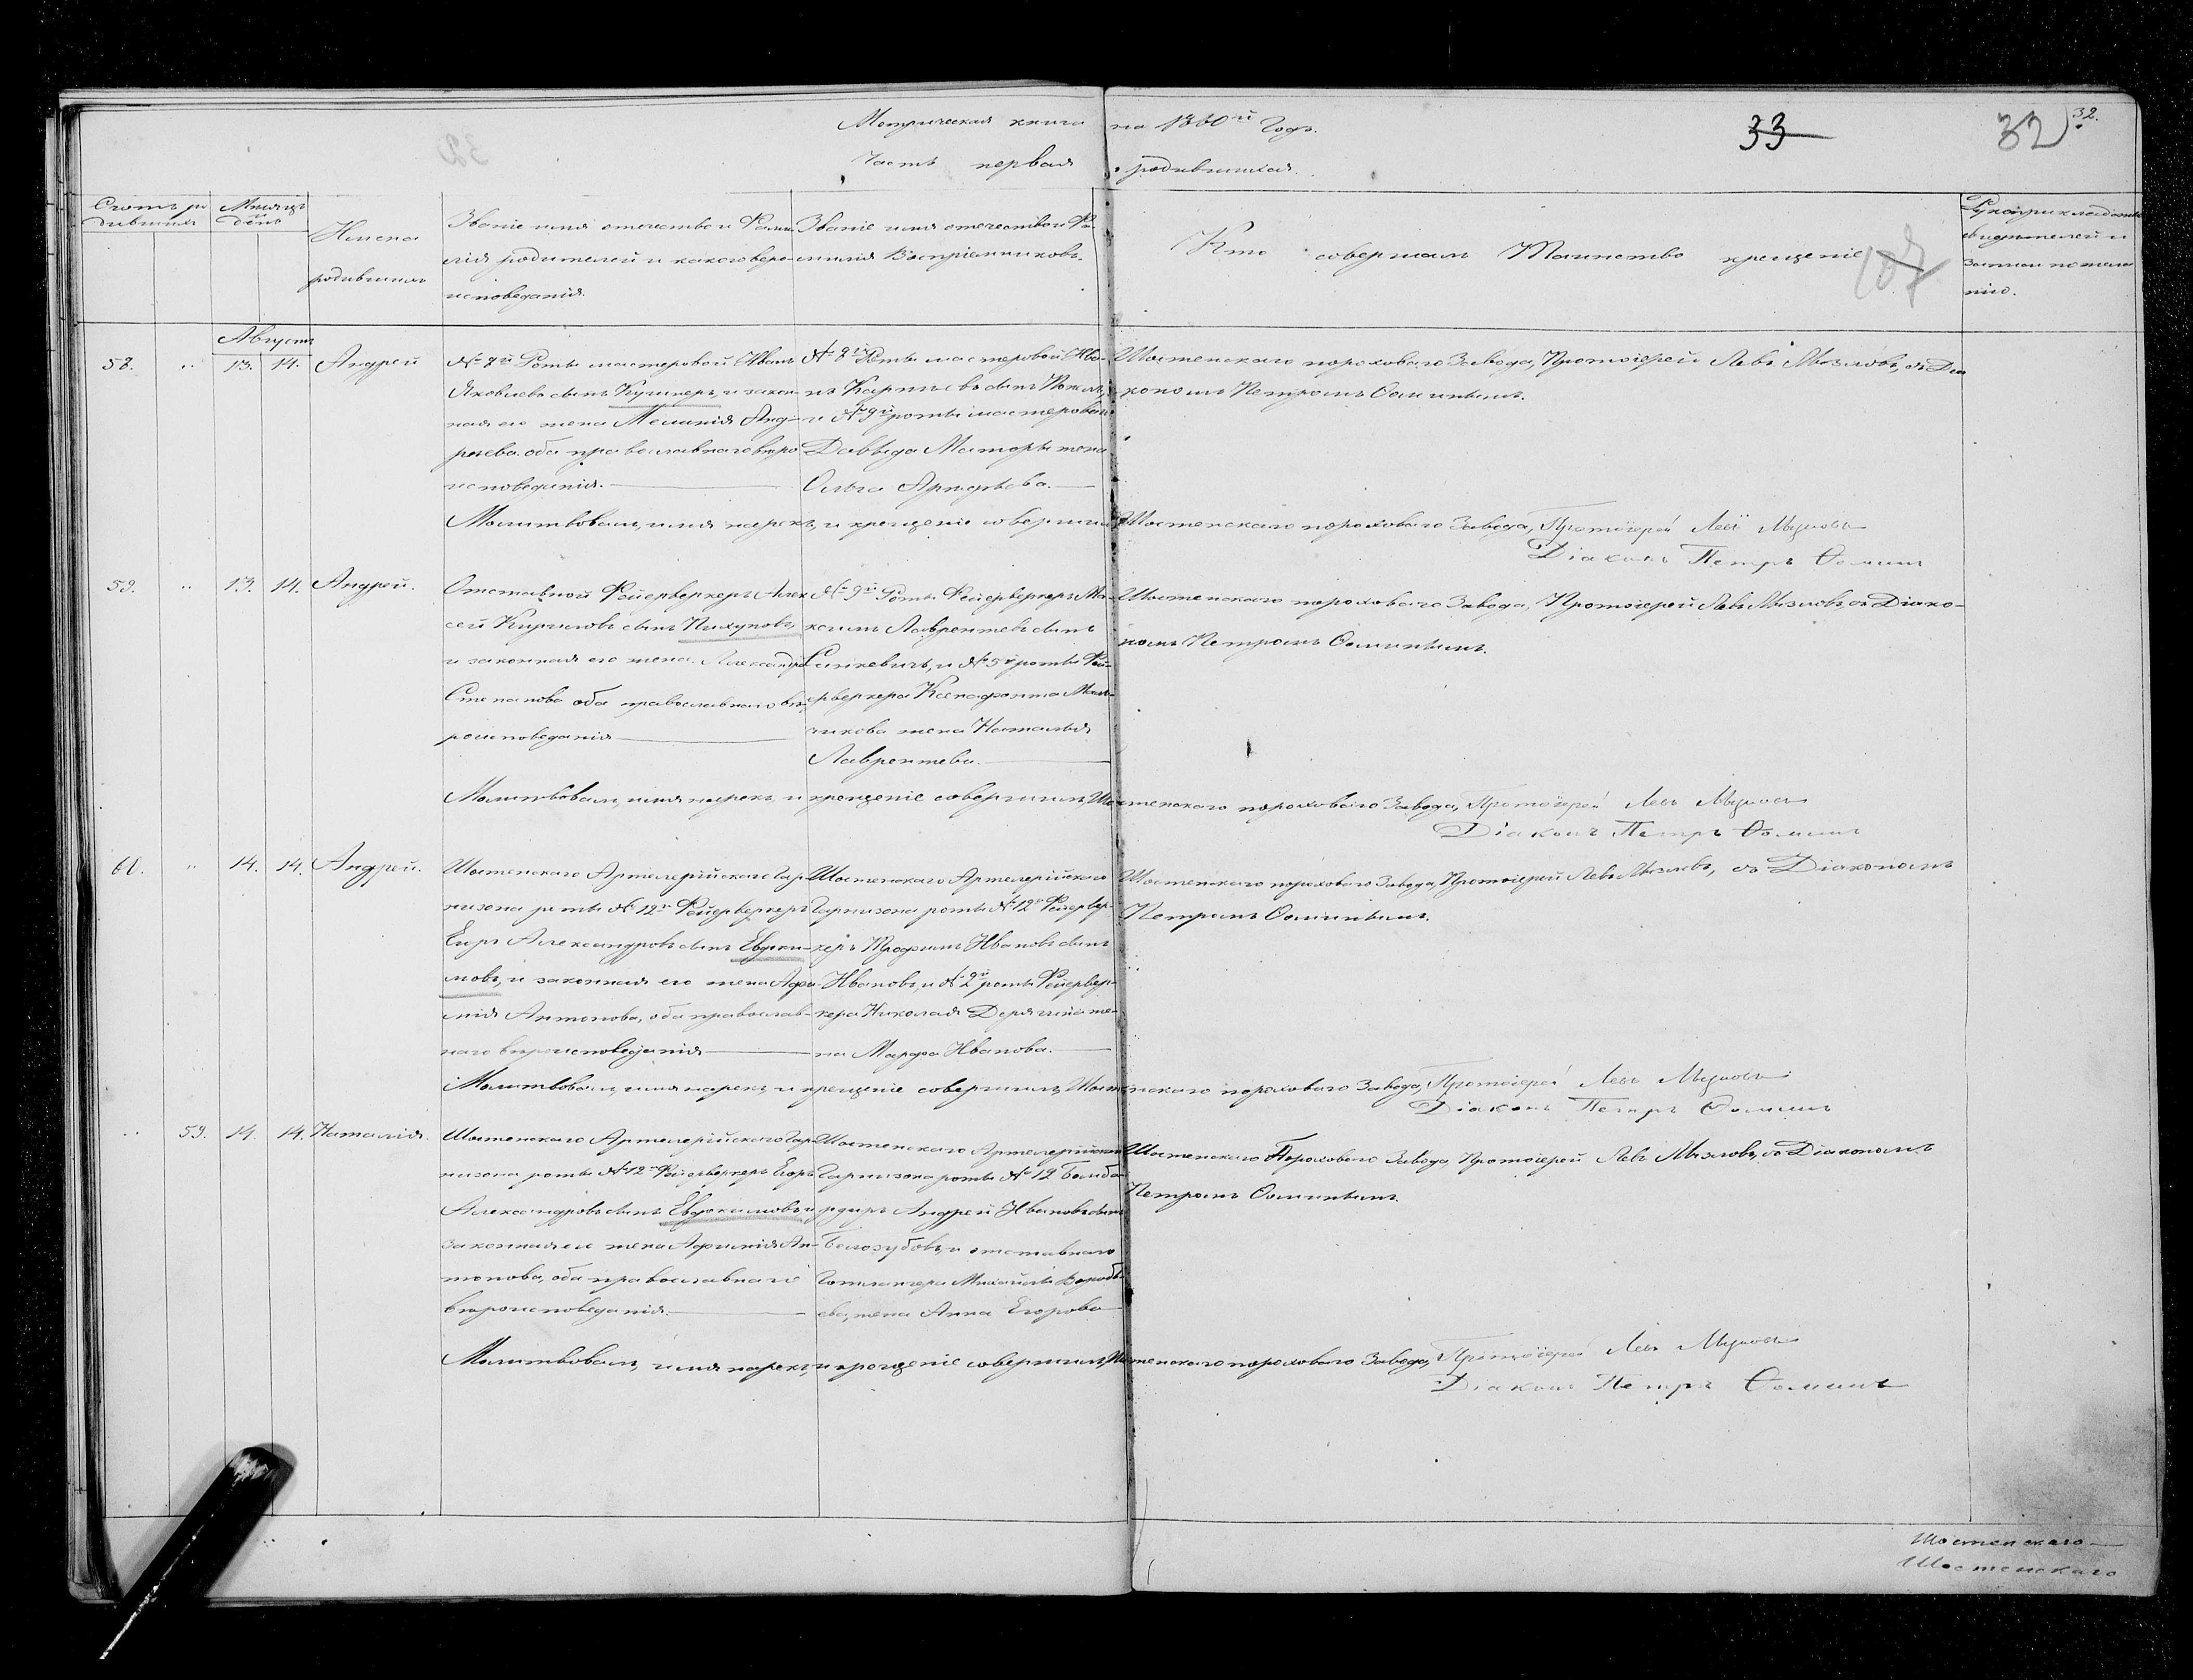 Метрическая книга на 1860й Годъ.
33
32
32.
Часть первая о родившихся.
Счетъ родившихся
Мѣсяцъ и день
Имена родившихся
Званіе имя отечество и Фамилія родителей и какого вероисповеданія.
Званіе имя отечество и Фамилія Воспріемниковъ.
Кто совершалъ Таинство крещенія
107
Рукоприкладство свидѣтелей и записи по желанію.
Августъ
58. „ 13. 14. Андрей
№ 2й Роты мастеровой Иванъ
Яковлевъ сынъ Кушнеръ, и закон-
ная его жена Меланія Анд-
реева оба православнаго вѣро
исповеданія.
№ 2й Роты мастеровой Ива-
нъ Карпъевъ сынъ
и № 9й роты мастероваго
Давыда Маторы жена
Ольга Аргеева.
Шостенскаго пороховаго Завода, Протоіерей Левъ Мизловъ, съ Діа
кономъ Петромъ Ѳоминымъ.
Молитвовалъ, имя нарекъ, и крещеніе совершилъ Шостенскаго пороховаго Завода, Протоіерей Левъ Мизловъ
Діаконъ Петръ Ѳоминъ
59. „ 13. 14. Андрей.
Отставной Фейерверкеръ Алек
сей Кириловъ сынъ Пихуновъ,
и законная его жена Александра
Степанова оба православнаго вѣ-
роисповеданія
№ 9й Роты Фейерверкеръ Ма-
ксимъ Лаврентевъ сынъ
Синкевичъ, и № 5й роты Фей-
ерверкера Ксенофонта
жена Наталья
Лаврентева.
Шостенскаго пороховаго Завода, Протоіерей Левъ Мизловъ, съ Діако-
номъ Петромъ Ѳоминымъ.
Молитвовалъ, имя нарекъ, и крещеніе совершилъ, Шостенскаго пороховаго Завода, Протоіерей Левъ Мизловъ
Діаконъ Петръ Ѳоминъ
60. „ 14. 14. Андрей.
Шостенскаго Артелерійскаго Гар-
низона роты № 12й Фейерверкеръ
Егоръ Александровъ сынъ Евдоки-
мовъ, и законная его жена Афи-
мія Антонова, оба православ-
наго вѣроисповеданія
Шостенскаго Артелерійскаго
Гарнизона роты № 12й Фейервер-
керъ Трофимъ Ивановъ сынъ
Ивановъ, и № 2й роты Фейервер-
кера Николая Дерягина же-
на Марфа Иванова.
Шостенскаго пороховаго Завода, Протоіерей Левъ Мизловъ, съ Діакономъ
Петромъ Ѳоминымъ.
Молитвовалъ, имя нарекъ, и крещеніе совершилъ, Шостенскаго пороховаго Завода, Протоіерей Левъ Мизловъ
Діаконъ Петръ Ѳоминъ
„ 59. 14. 14. Наталія.
Шостенскаго Артелерійскаго Гар
низона роты № 12й Фейерверкеръ Егоръ
Александровъ сынъ Евдокимовъ и
законная его жена Афимія Ан-
тонова, оба православнаго
вѣроисповеданія.
Шостенскаго Артелерійскаго
Гарнизона роты № 12 Бомба-
рдиръ Андрей Ивановъ сынъ
Белозубовъ, и отставнаго
Гантлангера Михайлы Воробь-
ева, жена Анна Егорова
Шостенскаго Пороховаго Завода, Протоіерей Левъ Мизловъ, съ Діакономъ
Петромъ Ѳоминымъ.
Молитвовалъ, имя нарекъ, и крещеніе совершилъ, Шостенскаго пороховаго Завода, Протоіерей Левъ Мизловъ
Діаконъ Петръ Ѳоминъ
Шостенскаго
Шостенскаго